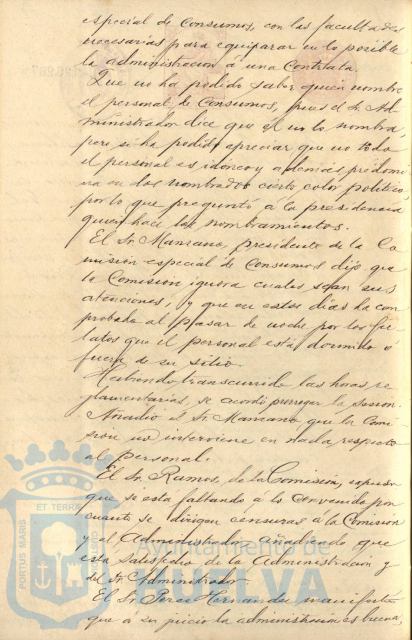 especial de Consumos, con las facultades
necesarias para equiparar en lo posible
la administracion á una Contrata.
Que no ha podido saber quien nombre
el personal de Consumos, pues el Sr. Ad-
ministrador dice que él no lo nombra,
pero si ha podido apreciar que no todo
el personal es idoneo y ademas predomi
na en los nombrados cierto color politico,
por lo que preguntó á la presidencia
quien hace los nombramientos.
El Sr. Manzano, presidente de la Co
mision especial de Consumos dijo que
la Comision ignora cuales sean sus
atenciones, y que en estos dias ha com
probado al pasar de noche por los fie
latos que el personal está dormido ó
fuera de su sitio.
Habiendo transcurrido las horas re
glamentarias, se acordó prorrogar la sesion.
Añadió el Sr. Manzano que la Comi
sion no interviene en nada respecto
al personal.
El Sr. Ramos, de la Comision, expuso
que se esta faltando á lo convenido por
cuanto se dirigen censuras á la Comision
y al Administrador, añadiendo que
esta satisfecho de la Administracion y
del Sr. Administrador.
El Sr. Perez Hernandez manifestó
que á su juicio la administracion es buena,
PORTUS MARIS
ET TERRÆ
CUSTODIO
Ayuntamiento de
HUELVA